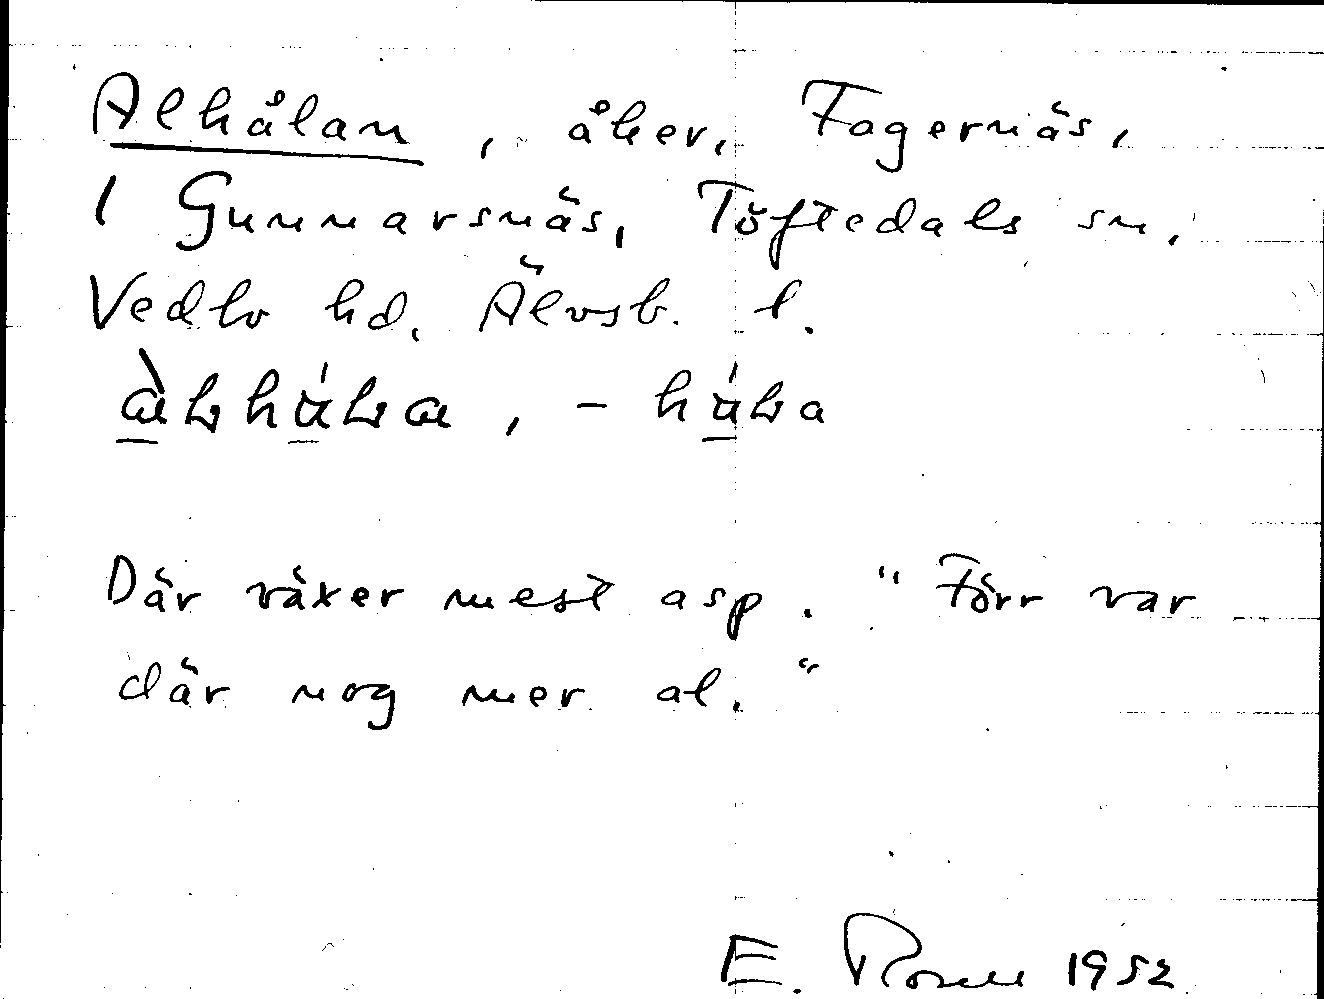 Alhålan, åker, Fagernäs,
1 Gunnarsnäs, Töftedals sn,
Vedbo hd, Älvsb. l.
Där växer mest asp. "Förr var
där nog mer al."
E. Rosell 1952